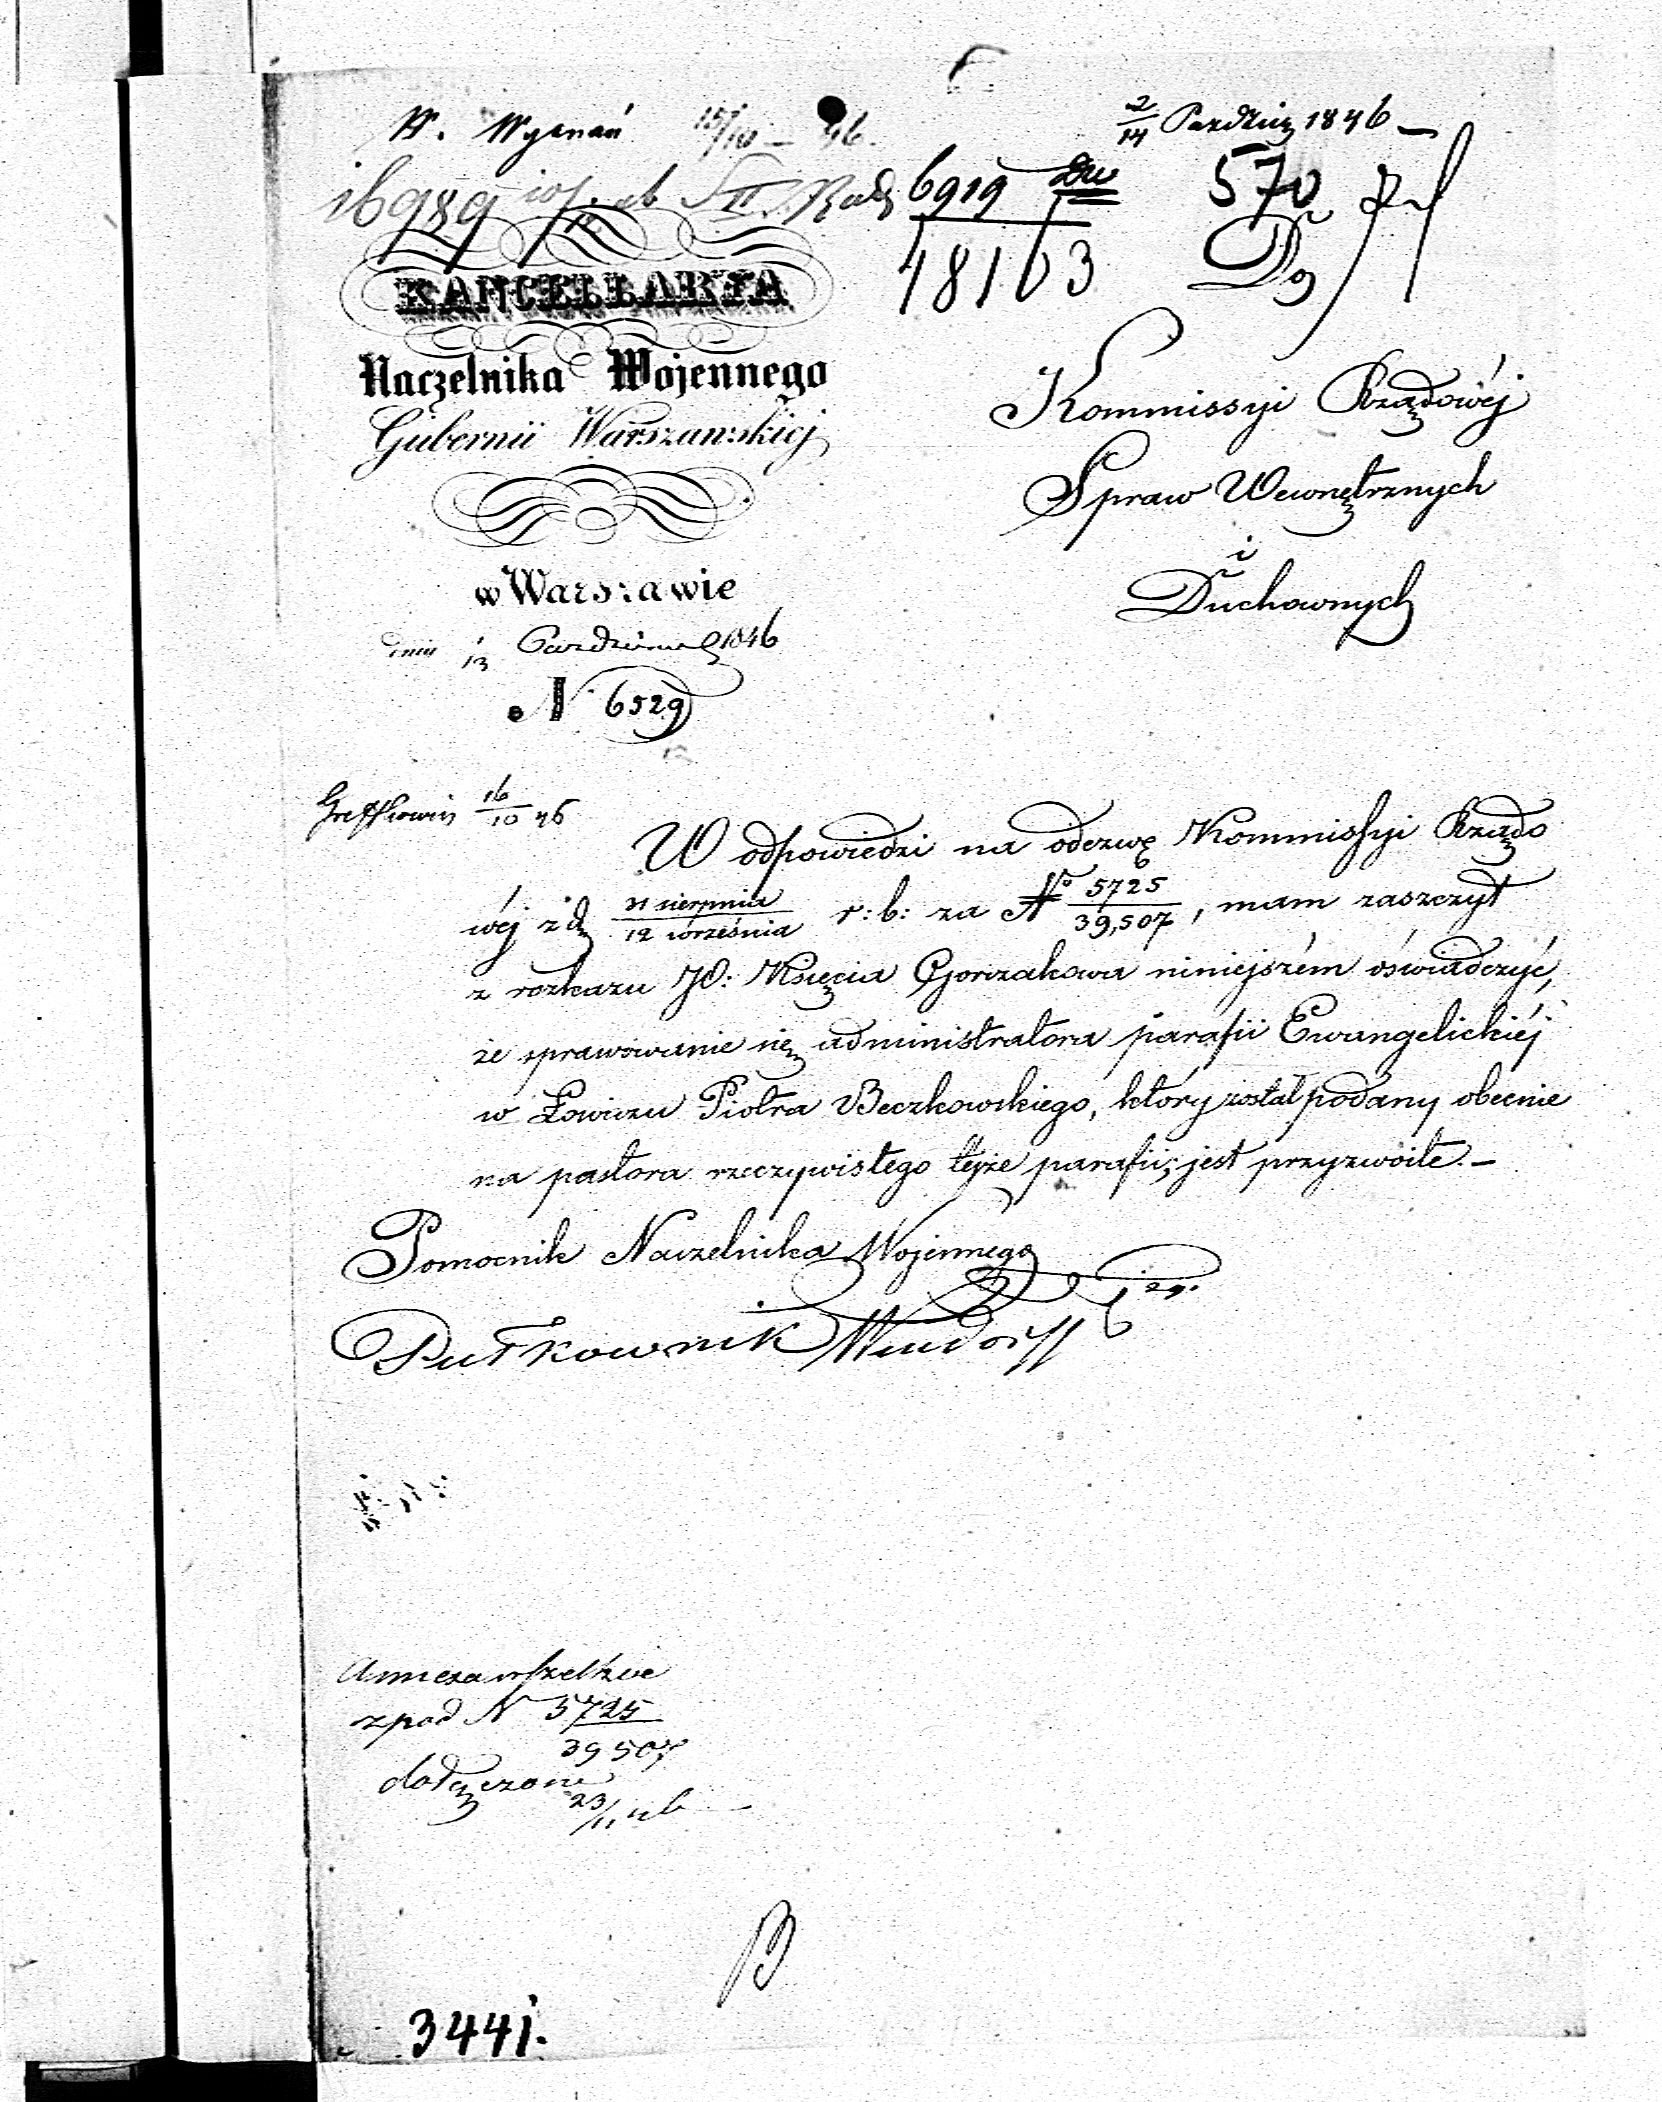 W. Wyznań 15/10 – 46.
2/14 Paźdźier 1846 –
16989
6919
48163
570
KANCELLARYA
Naczelnika Wojennego
Gubernii Warszawskiej
w Warszawie
dnia 1/13 Październ 1846
N 6529
Kommissyi Rządowéj
Spraw Wewnętrznych
i
Duchownych
16/10 46
W odpowiedzi na odezwę Kommissyi Rządo
wéj z d 31 sierpnia/12 września r: b: za No 5725/39,507, mam zaszczyt
z rozkazu JO: Księcia Gorczakowa niniejszém oświadczyć,
że sprawowanie się administratora parafii Ewangelickiéj
w Łowiczu Piotra Beczkowskiego, który został podany obecnie
na pastora rzeczywistego tejże parafii, jest przyzwoite. –
Pomocnik Naczelnika Wojennego
Pułkownik
Annexa
z pod N 5725
39507
dołączone
23/11
3441.